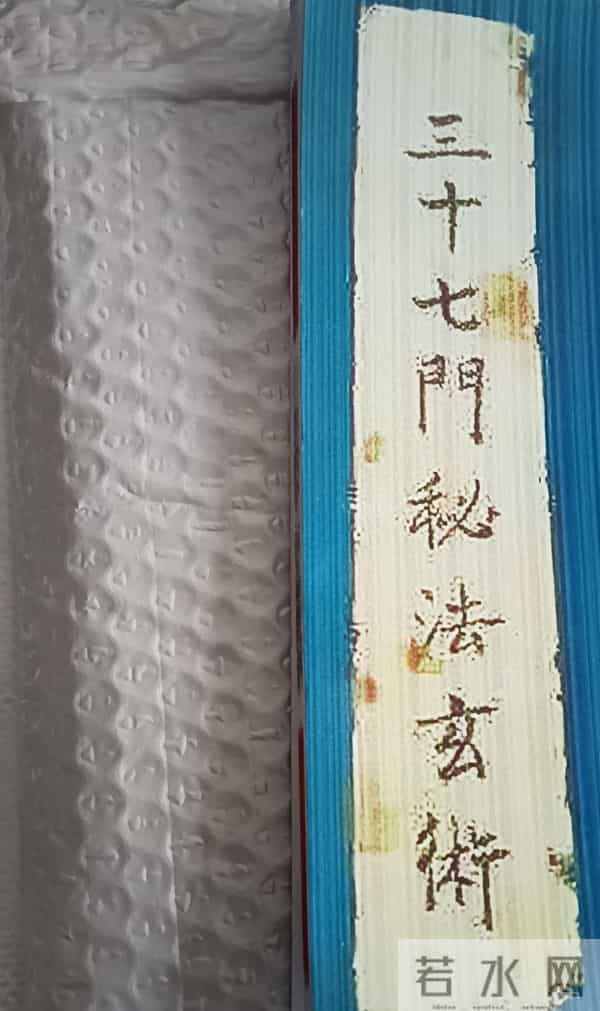 三十七門秘法玄術
若水网